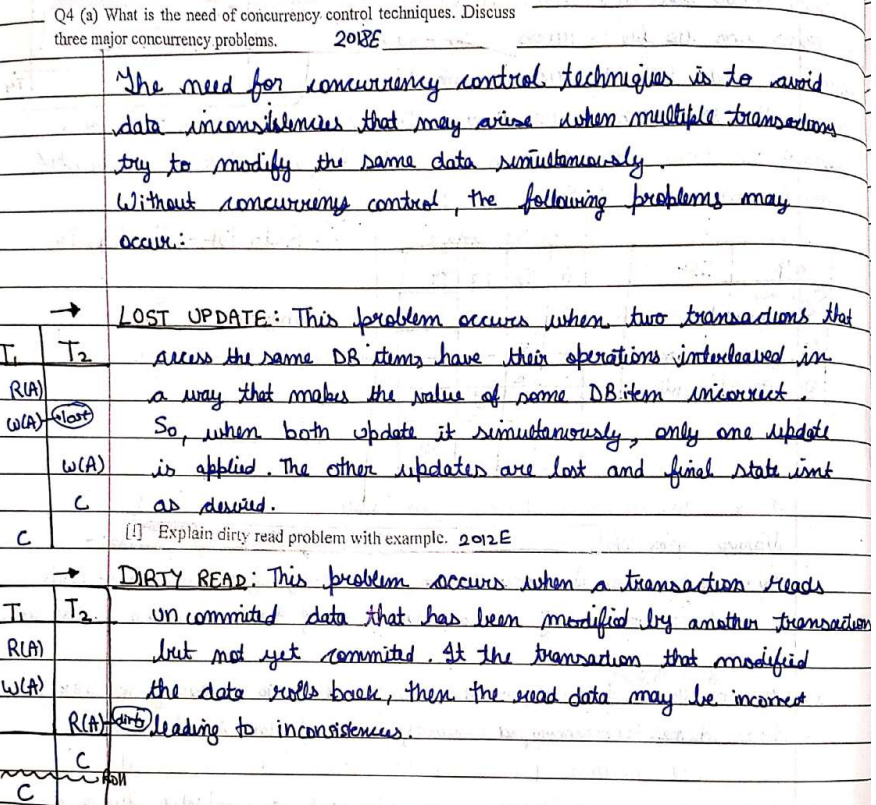 Q4 (a) What is the need of concurrency control techniques. Discuss
three major concurrency problems. 2018E
The need for concurrency control techniques is to avoid
data inconsistencies that may arise when multiple transactions
try to modify the same data simultaneously.
Without concurrency control, the following problems may
occur:
→ LOST UPDATE: This problem occurs when two transactions that
T1 T2 access the same DB items have their operations interleaved in
R(A) a way that makes the value of some DB item incorrect.
W(A) lost So, when both update it simultaneously, only one update
W(A) is applied. The other updates are lost and final state isnt
C as desired.
C [I] Explain dirty read problem with example. 2012E
→ DIRTY READ: This problem occurs when a transaction reads
T1 T2 un commited data that has been modified by another transaction
R(A) but not yet commited. If the transaction that modified
W(A) the data rolls back, then the read data may be incorrect
R(A) dirty leading to inconsistences.
C
Roll
C